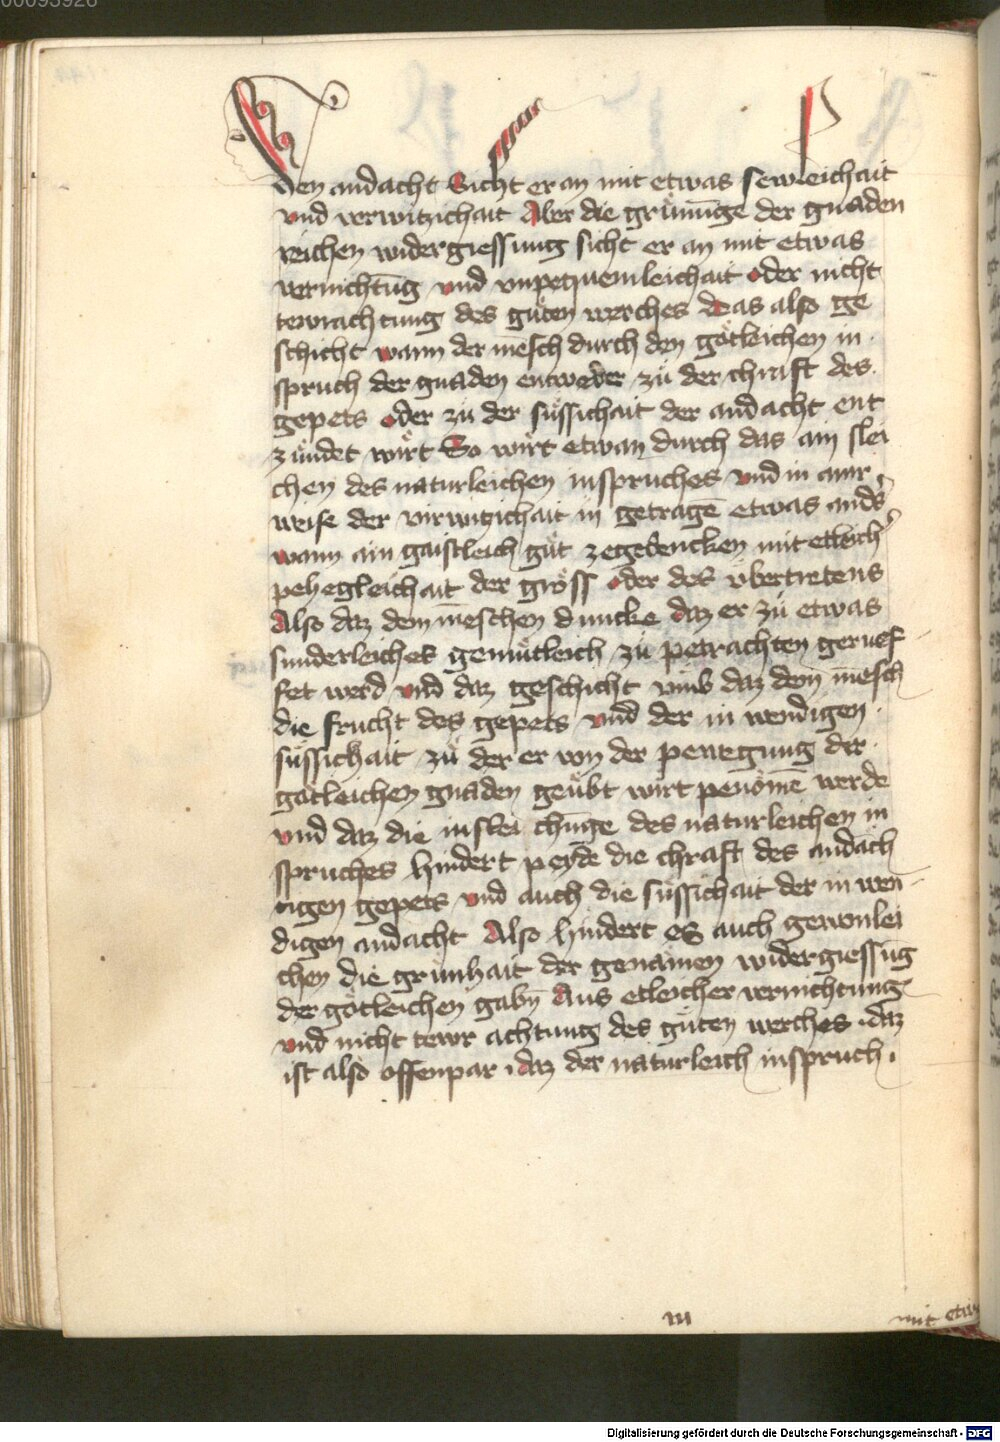 00093926
den andacht Sicht er an mit etwas sewleichait
vnd verwitzichait Aber die grunūge der gnaden
reichen widergiessung sicht er an mit etwas
vernichtūg vnd vnpequemleichait oder nicht
tewrachtung des guten werches das also ge
schicht wann der mēsch durch den gotleichen in
spruch der gnaden entweder zu der chraft des
gepets oder zu der sussichait der andacht ent
zundet wirt So wirt etwan durch das ain slei
chen des naturleichen inspruches vnd in ainr
weise der virwitzichait in getragē etwas anders
wann ain gaistleich gut zegedencken mit etleicher
pehegleichait der gross oder des vbertretens
Also daz dem mēschen duncke daz er zu etwas
sunderleiches gemutleich zu petrachten geruef
fet werd vnd daz geschicht vmb daz dem mēsch
die frucht des gepets vnd der in wendigen
sussichait zu der er von der pewegung der
gotleichen gnaden geubt wirt penomē werde
vnd daz die inslei chūge des naturleichen in
spruches hindert peyde die chraft des andach
tigen gepets vnd auch die sussichait der in wen
digen andacht Also hindert es auch gewonlei
chen die grunhait der genamen widergiessūg
der gotleichen gabn Aus etleicher vernichtung
vnd nicht tewr achtung des guten werches daz
ist also offenpar daz der naturleich inspruch
m
mit etw
Digitalisierung gefördert durch die Deutsche Forschungsgemeinschaft - DFG